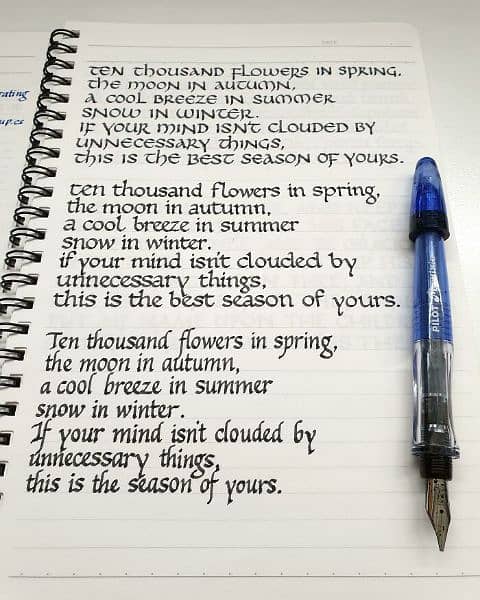 rating
up.es
DATE
TEN THOUSAND FLOWERS IN SPRING,
THE MOON IN AUTUMN,
A COOL BREEZE IN SUMMER
SNOW IN WINTER.
IF YOUR MIND ISN'T CLOUDED BY
UNNECESSARY THINGS,
THIS IS THE BEST SEASON OF YOURS.
ten thousand flowers in spring,
the moon in autumn,
a cool breeze in summer
snow in winter.
if your mind isn't clouded by
unnecessary things,
this is the best season of yours.
Ten thousand flowers in spring,
the moon in autumn,
a cool breeze in summer
snow in winter.
If your mind isn't clouded by
unnecessary things,
this is the season of yours.
PILOT